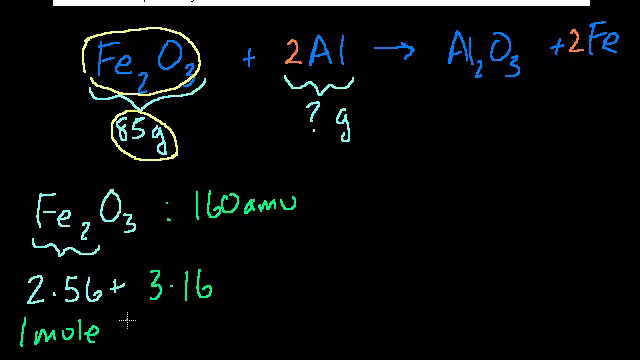 Fe₂O₃ + 2Al → Al₂O₃ + 2Fe
85g ? g
Fe₂O₃ : 160amu
2·56+ 3·16
1mole